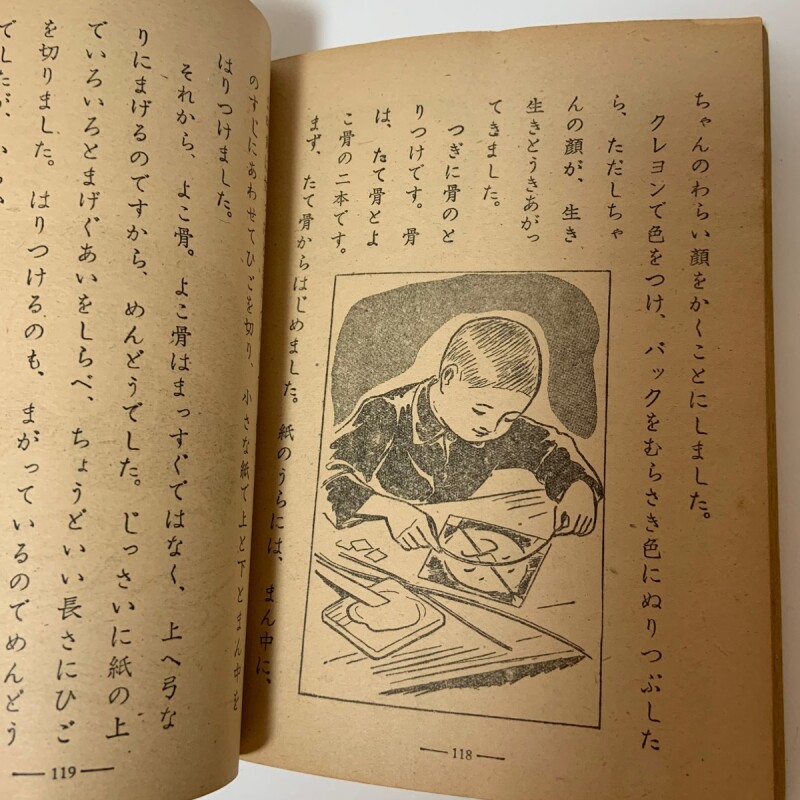 ちゃんのわらい顔をかくことにしました。
クレヨンで色をつけ、バックをむらさき色にぬりつぶした
ら、ただしちゃ
んの顔が、生き
生きとうきあがっ
てきました。
つぎに骨のと
りつけです。骨
は、たて骨とよ
こ骨の二本です。
まず、たて骨からはじめました。紙のうらには、まん中に、
118
のすじにあわせてひごを切り、小さな紙で上と下とまん中を
はりつけました。
それから、よこ骨。よこ骨はまっすぐではなく、上へ弓な
りにまげるのですから、めんどうでした。じっさいに紙の上
でいろいろとまげぐあいをしらべ、ちょうどいい長さにひご
を切りました。はりつけるのも、まがっているのでめんどう
でしたが、
119